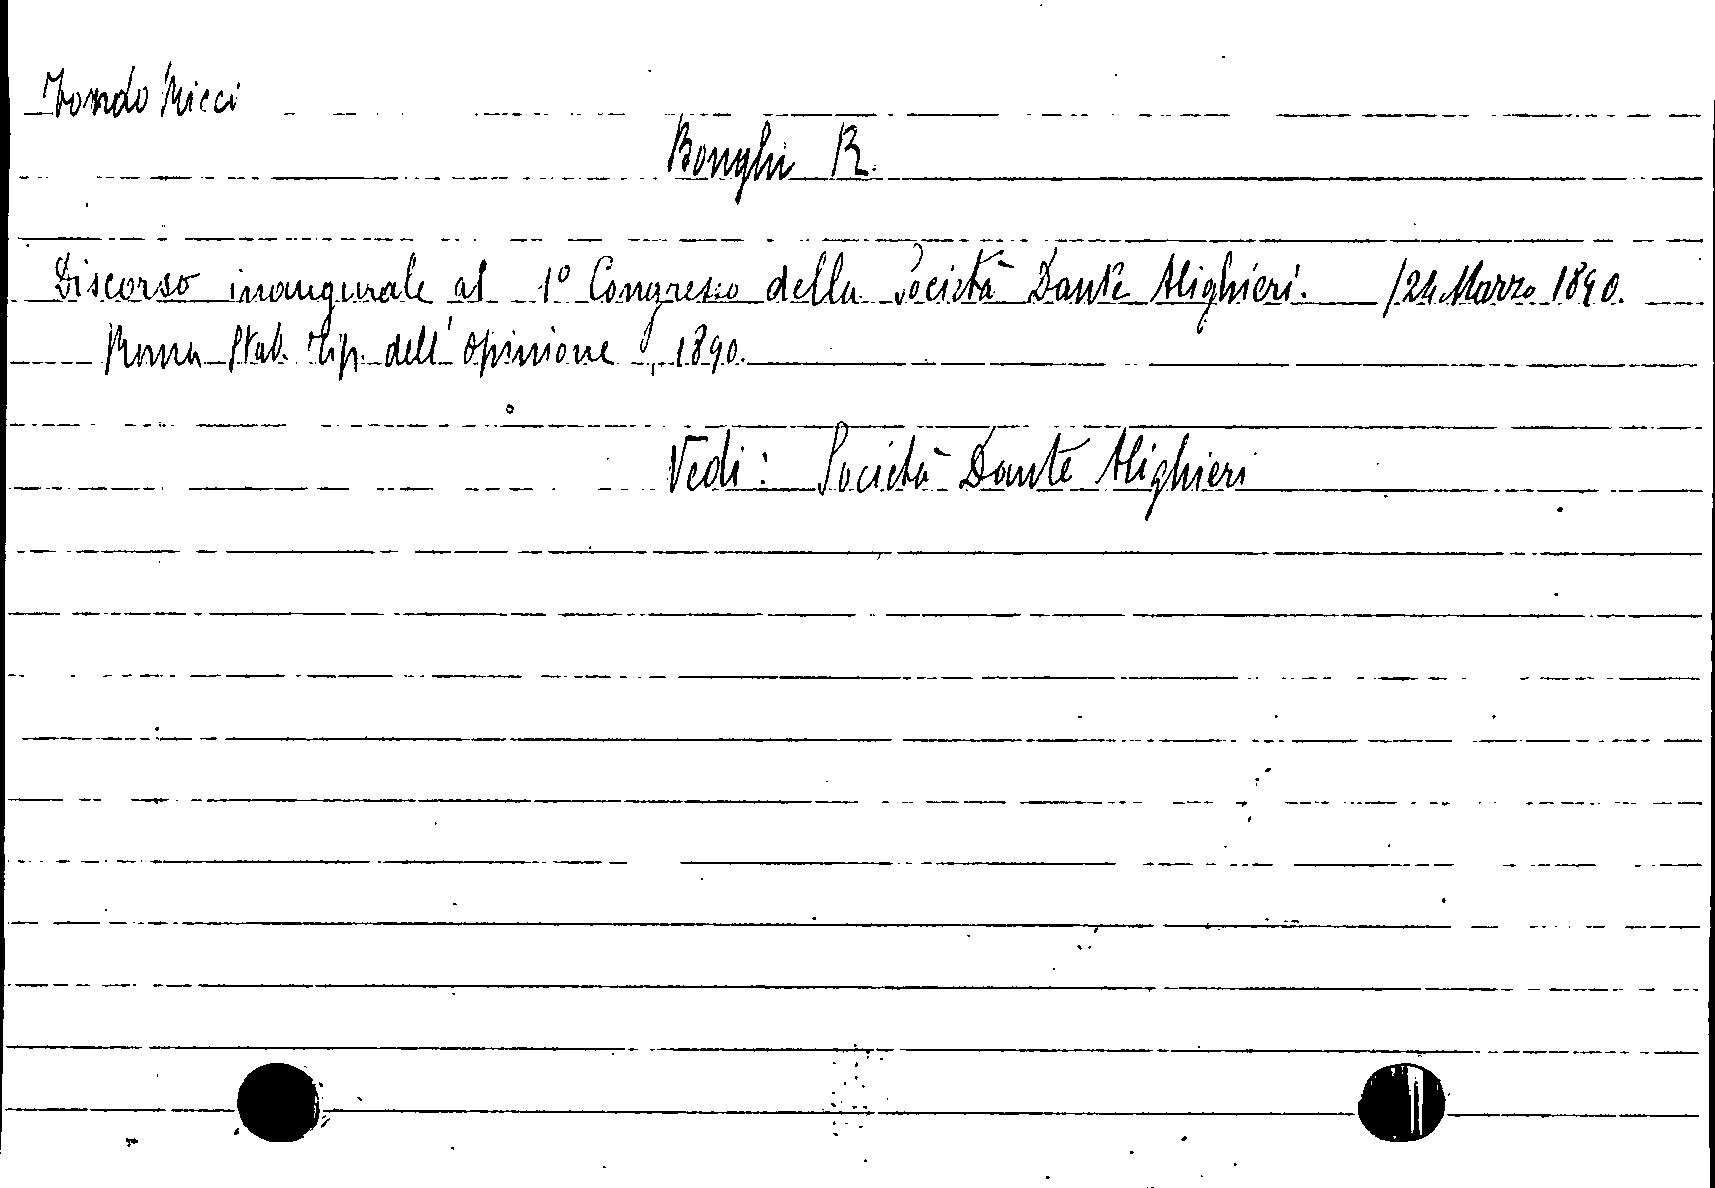 Fondo Ricci
Bonghi R.
Discorso inaugurale al 1° Congresso della Società Dante Alighieri. /24 Marzo 1890.
Roma Stab. Tip. dell'Opinione, 1890.
Vedi: Società Dante Alighieri